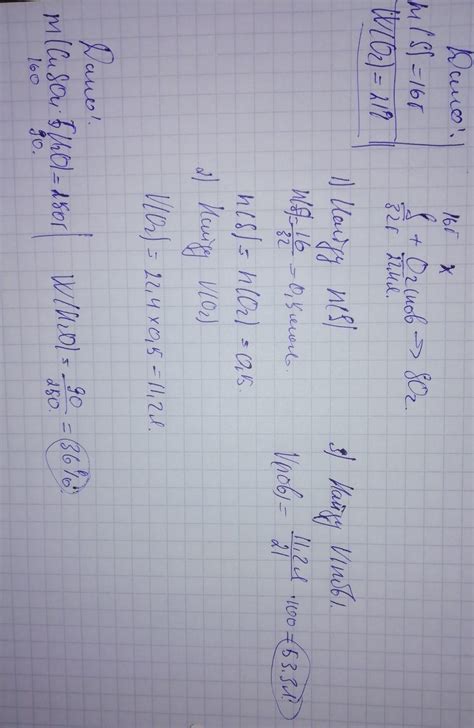 Дано:
m(S)=16г
W(O₂)=21%
16г x
S + O₂(пов) → SO₂
32г 22,4л.
1) Найду n(S)
n(S)=16/32=0,5 моль.
n(S)=n(O₂)=0,5.
2) Найду V(O₂)
V(O₂)=22,4×0,5=11,2л.
3) Найду V(пов).
V(пов)=11,2л/21·100=53,3л
Дано:
M(CuSO₄·5H₂O)=250г
160 90.
W(H₂O)=90/250=36%